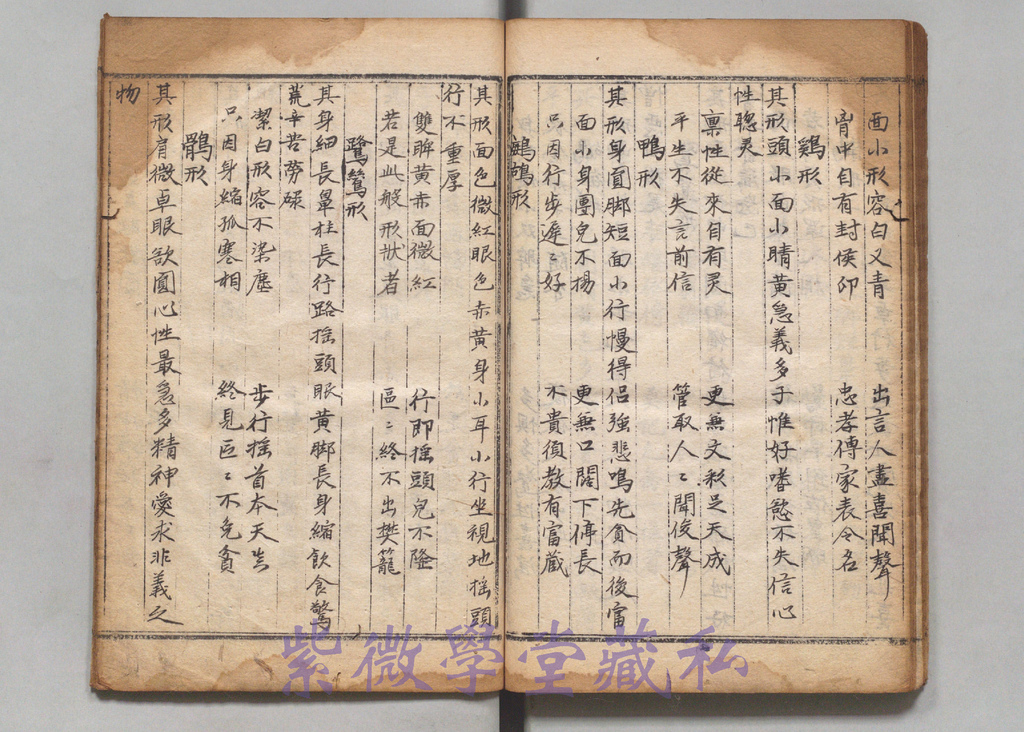 面小形容白又青 出言人盡喜聞聲
胷中自有封侯印 忠孝傳家表令名
鷄形
其形頭小面小睛黄急義多子惟好嗜慾不失信心
性聰灵
稟性從來自有灵 更無文彩足天成
平生不失言前信 管取人〻聞後聲
鴨形
其形身圓脚短面小行慢得侣強悲鳴先貧而後富
面小身團皃不揚 更無口闊下停長
只因行步遲〻好 不貴須教有富藏
鷓鴣形
其形面色微紅眼色赤黄身小耳小行坐視地摇頭
行不重厚
雙眸黄赤面微紅 行即摇頭皃不隆
若是此般形狀者 區〻終不出樊籠
鷺鶿形
其身細長鼻柱長行路摇頭眼黄脚長身縮飲食驚
荒辛苦勞碌
潔白形容不染塵 步行摇首本天真
只因身縮孤寒相 終見區〻不免貧
鶻形
其形肩微卓眼欲圓心性最急多精神愛求非義之
物
紫微學堂藏私